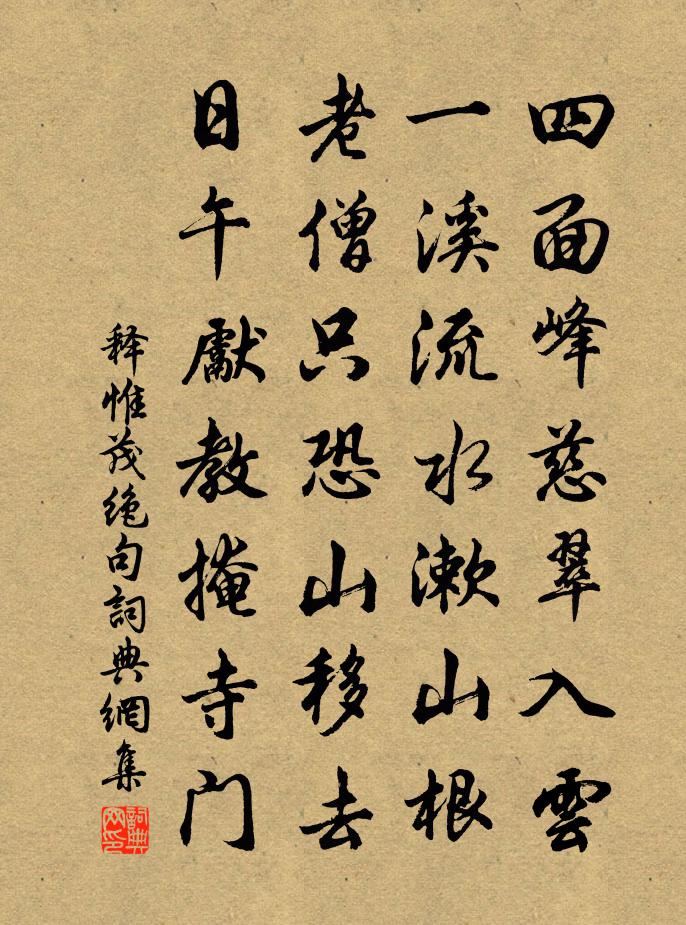 四面峰慈翠入雲
一溪流水漱山根
老僧只恐山移去
日午獻教掩寺门
释惟茂绝句詞典網集
詞典网印